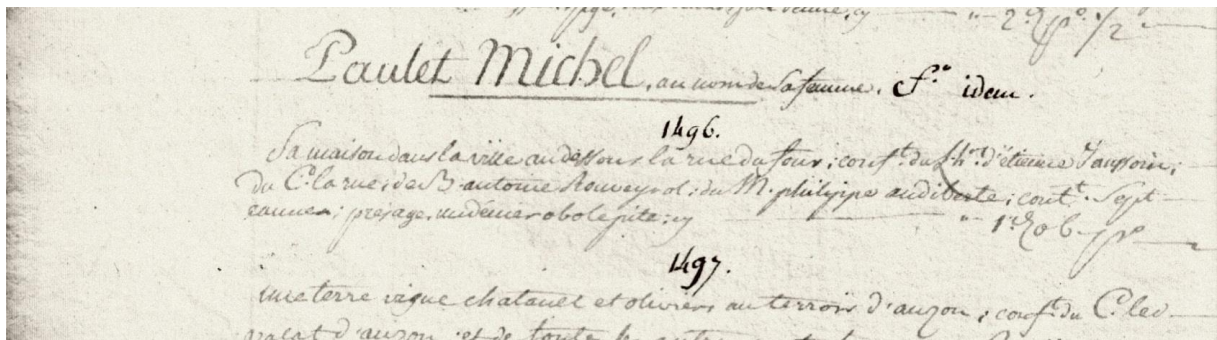 Paulet Michel, au nom de sa femme. f.º idem.
1496.
Sa maison dans la ville au dessous la rue du four; conf.t du h.r d'étienne
du C. la rue; de B. antoine Rouveyrol; du M. philippe audiberte; cont.t Sept
cannes; presage, un dénier obole pite; cy 1.d ob. pte
1497.
une terre vigne chatanet et oliviers au terroir d'auzon; conf.t du C. le d.
valat d'auzon et de toute les autres